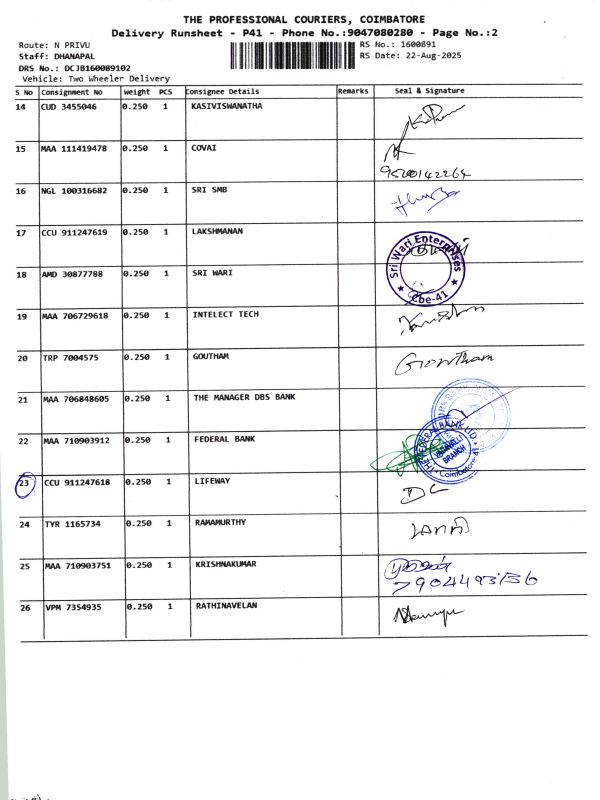 THE PROFESSIONAL COURIERS, COIMBATORE
Delivery Runsheet - P41 - Phone No.:9047080280 - Page No.:2
Route: N PRIVU RS No.: 1600891
Staff: DHANAPAL RS Date: 22-Aug-2025
DRS No.: DCJB160089102
Vehicle: Two Wheeler Delivery
S No Consignment No Weight PCS Consignee Details Remarks Seal & Signature
14 CUD 3455046 0.250 1 KASIVISWANATHA
15 MAA 111419478 0.250 1 COVAI
9500142264
16 NGL 100316682 0.250 1 SRI SMB
17 CCU 911247619 0.250 1 LAKSHMANAN
18 AMD 30877788 0.250 1 SRI WARI
Sri Wari Enterprises
Cbe-41
19 MAA 706729618 0.250 1 INTELECT TECH
20 TRP 7004575 0.250 1 GOUTHAM Gowtham
21 MAA 706848605 0.250 1 THE MANAGER DBS BANK
22 MAA 710903912 0.250 1 FEDERAL BANK
THE FEDERAL BANK LTD
BRANCH
Coimbatore-41
23 CCU 911247618 0.250 1 LIFEWAY
24 TYR 1165734 0.250 1 RAMAMURTHY
25 MAA 710903751 0.250 1 KRISHNAKUMAR
7904493136
26 VPM 7354935 0.250 1 RATHINAVELAN